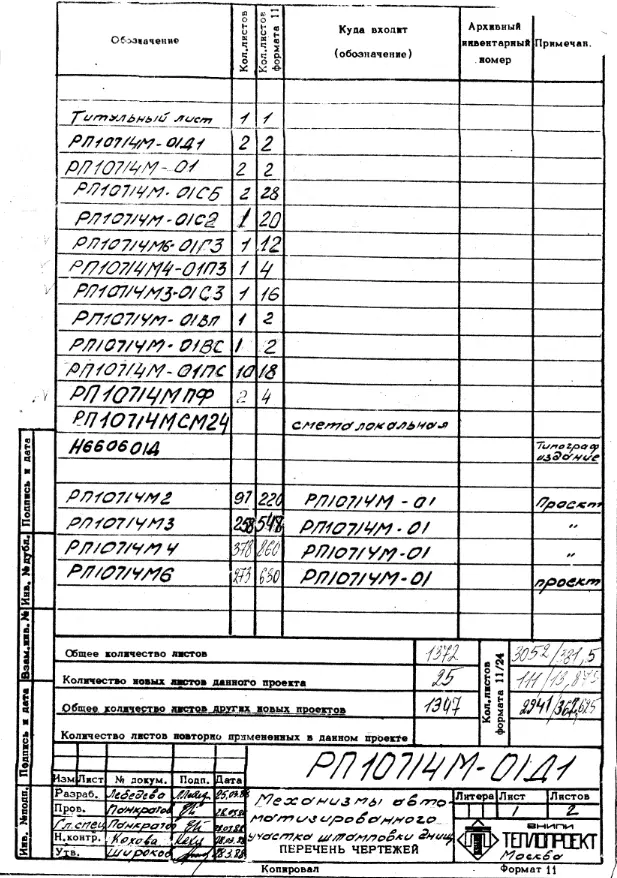 Обозначение Кол.листов Кол.листов формата 11 Куда входит (обозначение) Архивный инвентарный номер Примечан.
Титульный лист 1 1
РП10714М-01Д1 2 2
РП10714М-01 2 2
РП10714М-01СБ 2 28
РП10714М-01С2 1 20
РП10714М6-01Г3 1 12
РП10714М4-01П3 1 4
РП10714М3-01С3 1 16
РП10714М-01ВП 1 2
РП10714М-01ВС 1 2
РП10714М-01ПС 10 18
РП10714МПФ 2 4
РП10714МСМ24 смета локальная
Н660601Д Типограф издание
РП10714М2 97 220 РП10714М-01 Проект
РП10714М3 258 548 РП10714М-01 "
РП10714М4 378 860 РП10714М-01 "
РП10714М6 273 630 РП10714М-01 проект
Общее количество листов 1372
Количество новых листов данного проекта 25
Общее количество листов других новых проектов 1347
Количество листов повторно примененных в данном проекте
Кол.листов формата 11/24
3052/381,5
111/13,875
2941/367,625
Подпись и дата
Инв. № дубл.
Взам.инв. №
Подпись и дата
Инв. №подл.
РП10714М-01Д1
Изм Лист № докум. Подп. Дата
Разраб. Лебедева
Пров. Панкратов
Гл.спец Панкратов
Н.контр. Кохова
Утв. Широков
Механизмы авто-
матизированного
участка штамповки днищ
ПЕРЕЧЕНЬ ЧЕРТЕЖЕЙ
Литера Лист Листов
1 2
ВНИПИ
ТЕПЛОПРОЕКТ
Москва
Копировал Формат 11